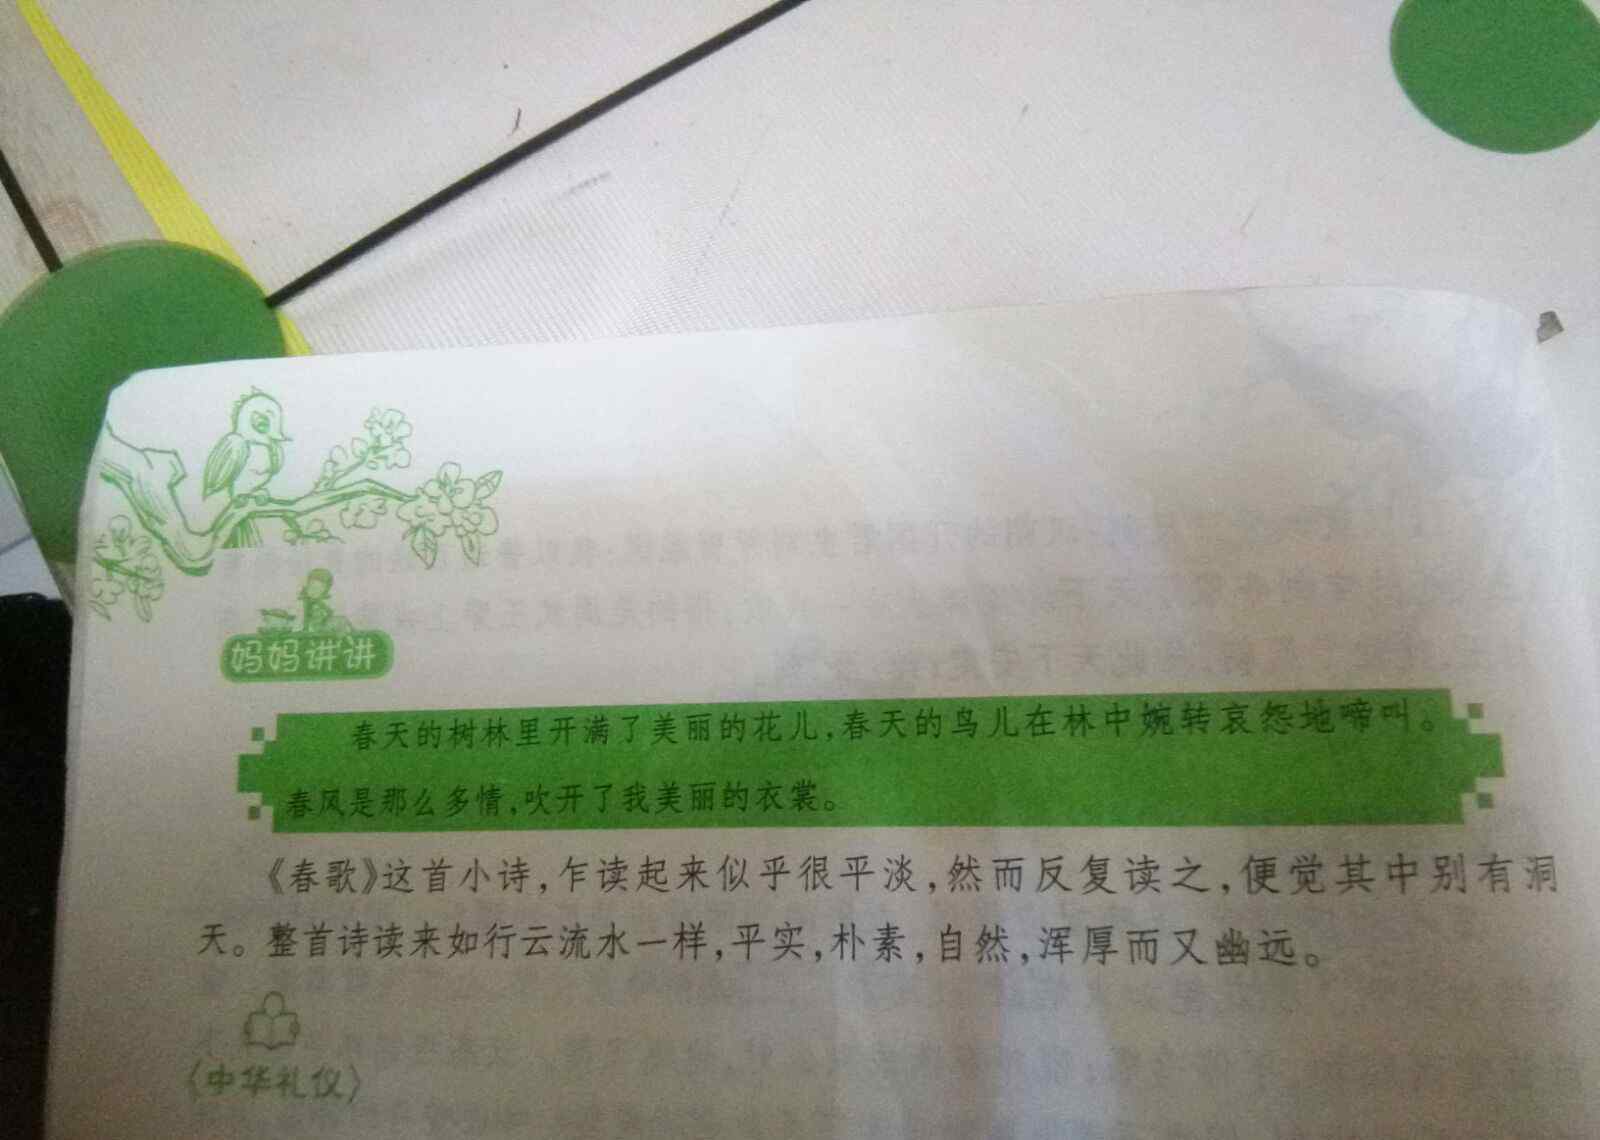 妈妈讲讲
春天的树林里开满了美丽的花儿，春天的鸟儿在林中婉转哀怨地啼叫。
春风是那么多情，吹开了我美丽的衣裳。
《春歌》这首小诗，乍读起来似乎很平淡，然而反复读之，便觉其中别有洞
天。整首诗读来如行云流水一样，平实，朴素，自然，浑厚而又幽远。
〈中华礼仪〉